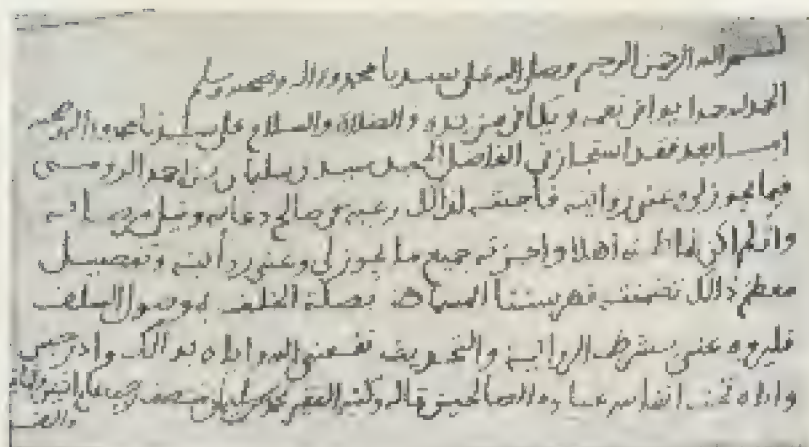 بسم الله الرحمن الرحيم وصلى الله على سيدنا محمد واله وصحبه وسلم
الحمد لله حمدا يوافي نعمه ويكافئ مزيده والصلاة والسلام على سيدنا محمد واله وصحبه
اما بعد فقد استجازني الفاضل سيدي سليمان بن احمد
فيما يجوز لي وعني روايته فاجبته لذالك رغبة في صالح دعائه
وان لم اكن اهلا واجزته جميع ما يجوز لي وعني روايته وتفصيل
معظم ذالك تضمنته فهرستنا المسماة بصلة الخلف بموصول السلف
فليروه عني بشرط الرواية نفعني الله واياه بذالك وادرجني
واياه تحت انفاس عباده الصالحين قاله وكتبه الفقير محمد بن سليمان منتصف رجب عام
والف